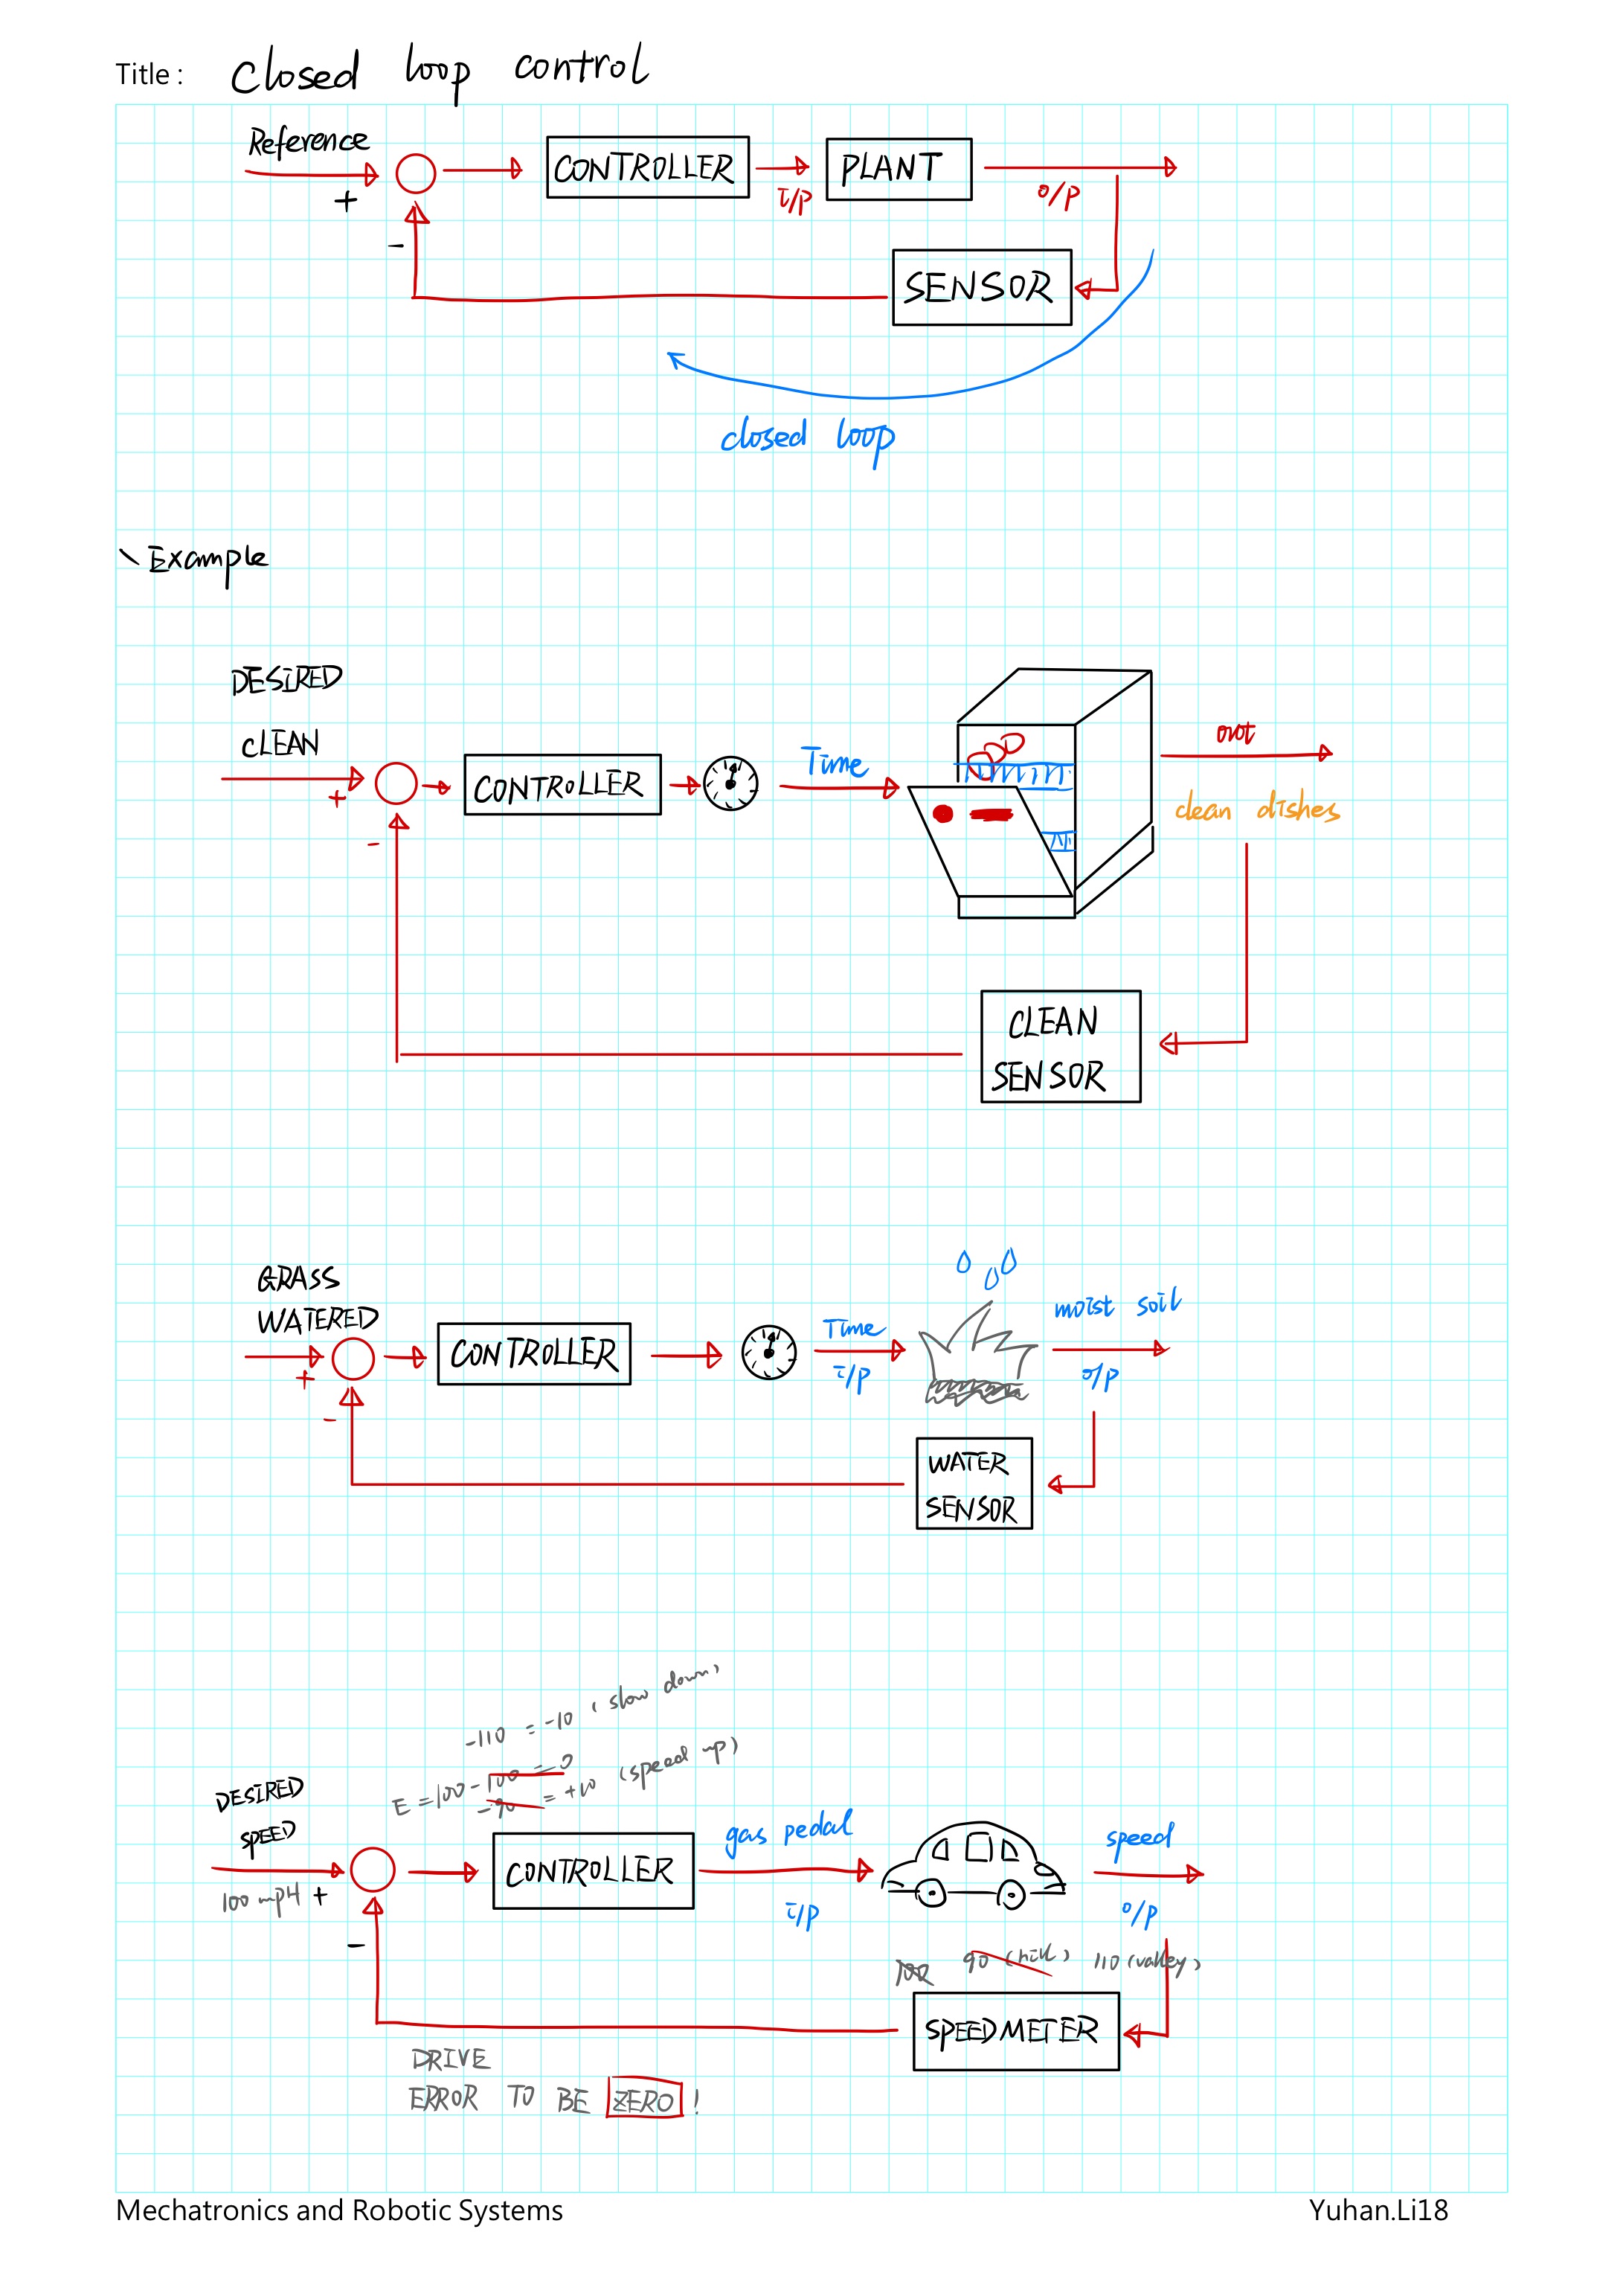 Title : closed loop control
Reference
+
-
CONTROLLER
i/p
PLANT
o/p
SENSOR
closed loop
Example
DESIRED
CLEAN
+
-
CONTROLLER
Time
out
clean dishes
CLEAN
SENSOR
GRASS
WATERED
+
-
CONTROLLER
Time
i/p
moist soil
o/p
WATER
SENSOR
-110 = -10 (slow down)
E = 100 - 100 = 0
-90 = +10 (speed up)
DESIRED
SPEED
100 mpH +
-
CONTROLLER
gas pedal
i/p
speed
o/p
100 90 (hill) 110 (valley)
SPEEDMETER
DRIVE
ERROR TO BE ZERO !
Mechatronics and Robotic Systems
Yuhan.Li18